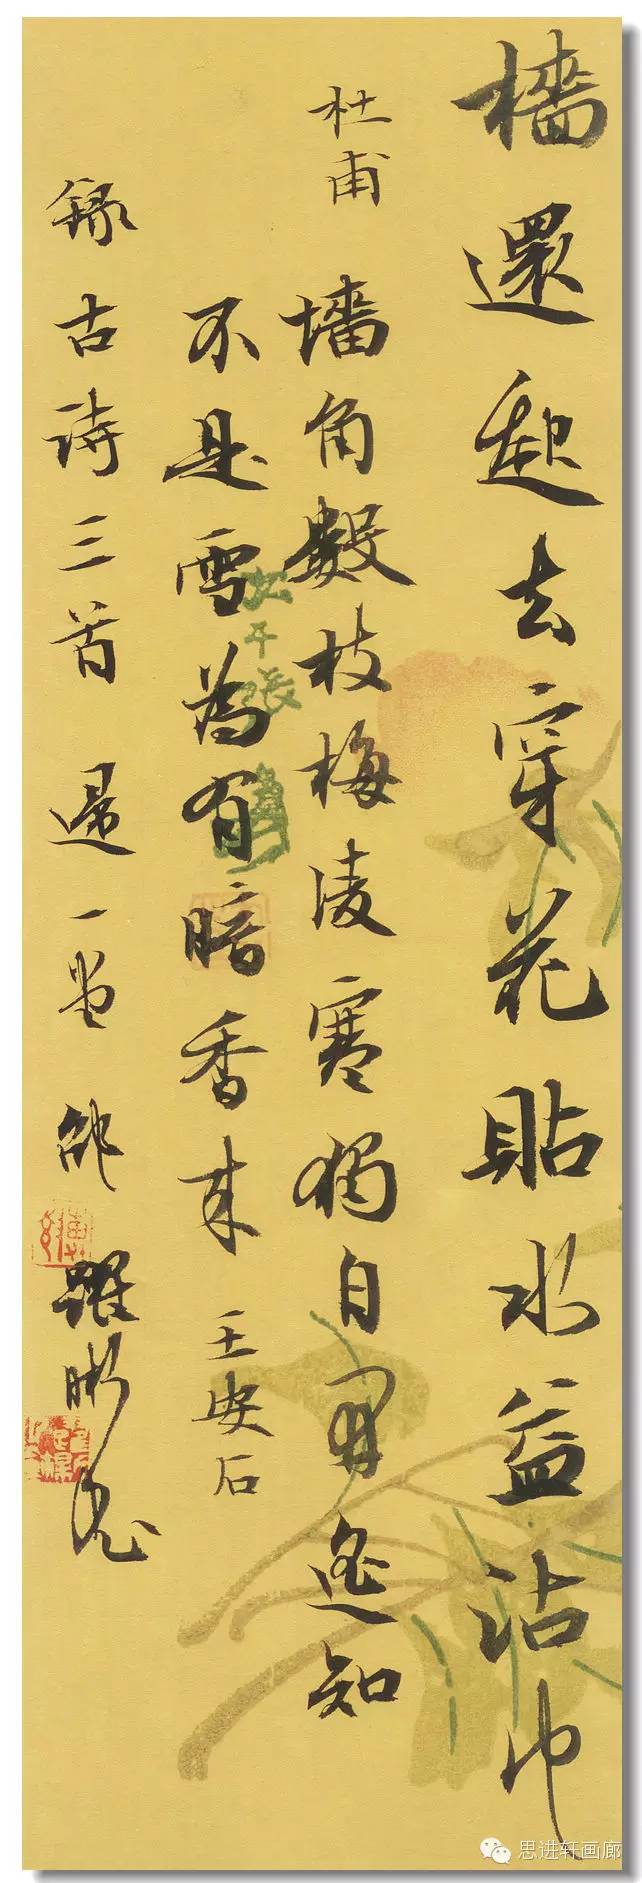 檣還起去穿花貼水益沾巾
杜甫
墙角數枝梅凌寒獨自開遙知
不是雪為有暗香來王安石
錄古詩三首
思进轩画廊